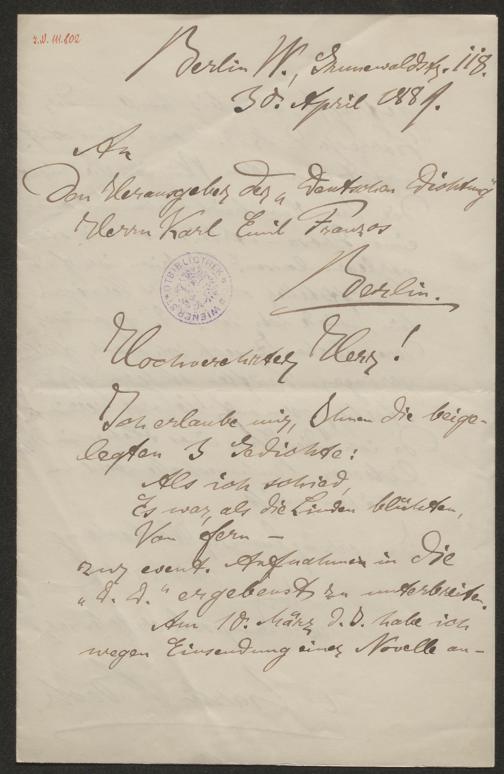 J.N. III.802
Berlin W., Grunewaldstr. 118.
30. April 1889.
An
Den Herausgeber der „Deutschen Dichtung"
Herrn Karl Emil Franzos
Berlin.
WIENER STADTBIBLIOTHEK
Hochverehrter Herr!
Ich erlaube mir, Ihnen die beige-
legten 3 Gedichte:
Als ich schied,
Es war, als die Linden blühten,
Von fern —
zur event. Aufnahme in die
„d. D." ergebenst zu unterbreiten.
Am 10. März d. J. habe ich
wegen Einsendung einer Novelle an-